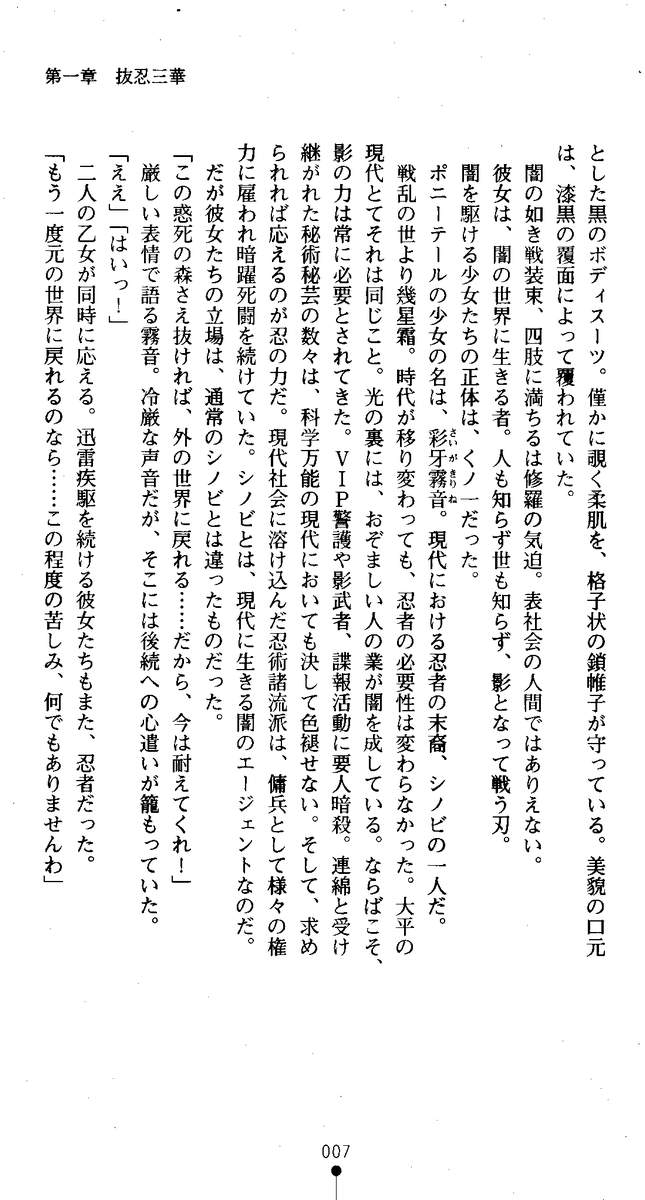 第一章　抜忍三華
とした黒のボディスーツ。僅かに覗く柔肌を、格子状の鎖帷子が守っている。美貌の口元
は、漆黒の覆面によって覆われていた。
闇の如き戦装束、四肢に満ちるは修羅の気迫。表社会の人間ではありえない。
彼女は、闇の世界に生きる者。人も知らず世も知らず、影となって戦う刃。
闇を駆ける少女たちの正体は、くノ一だった。
ポニーテールの少女の名は、彩牙霧音。現代における忍者の末裔、シノビの一人だ。
さいがきりね
戦乱の世より幾星霜。時代が移り変わっても、忍者の必要性は変わらなかった。大平の
現代とてそれは同じこと。光の裏には、おぞましい人の業が闇を成している。ならばこそ、
影の力は常に必要とされてきた。ＶＩＰ警護や影武者、諜報活動に要人暗殺。連綿と受け
継がれた秘術秘芸の数々は、科学万能の現代においても決して色褪せない。そして、求め
られれば応えるのが忍の力だ。現代社会に溶け込んだ忍術諸流派は、傭兵として様々の権
力に雇われ暗躍死闘を続けていた。シノビとは、現代に生きる闇のエージェントなのだ。
だが彼女たちの立場は、通常のシノビとは違ったものだった。
「この惑死の森さえ抜ければ、外の世界に戻れる……だから、今は耐えてくれ！」
厳しい表情で語る霧音。冷厳な声音だが、そこには後続への心遣いが籠もっていた。
「ええ」「はいっ！」
二人の乙女が同時に応える。迅雷疾駆を続ける彼女たちもまた、忍者だった。
「もう一度元の世界に戻れるのなら……この程度の苦しみ、何でもありませんわ」
007